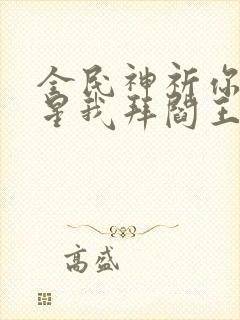 全民神祈你拜
星我拜阎王
高盛